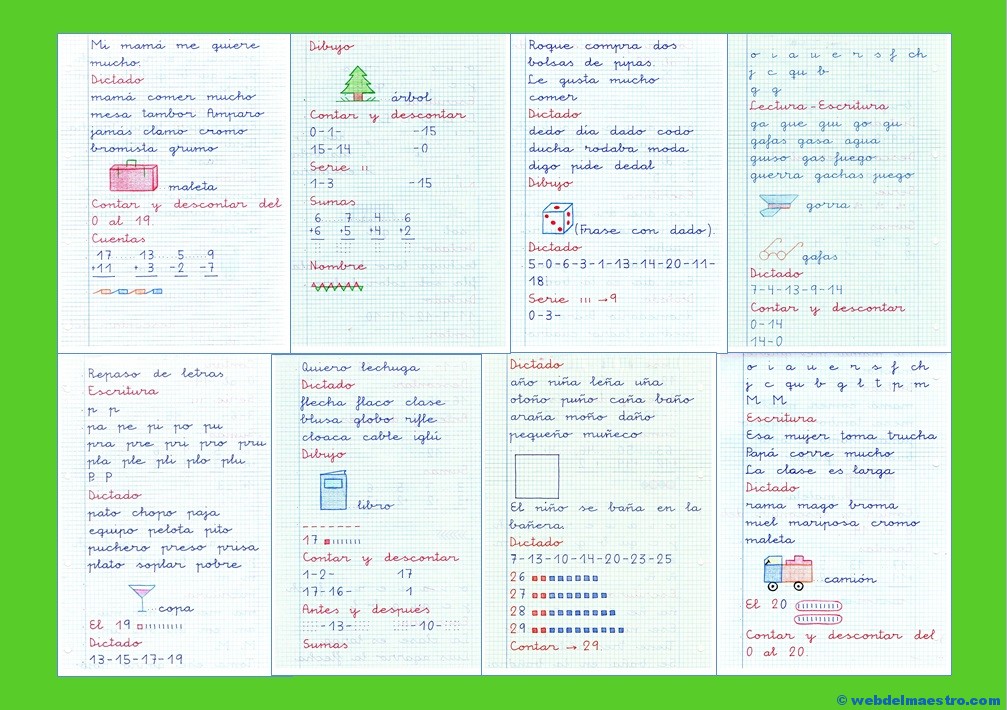 Mi mamá me quiere
mucho.
Dictado
mamá comer mucho
mesa tambor Amparo
jamás clamo cromo
bromista grumo
maleta
Contar y descontar del
0 al 19.
Cuentas
17 13 5 9
+11 + 3 -2 -7
Dibujo
árbol
Contar y descontar
0-1- -15
15-14 -0
Serie II
1-3 -15
Sumas
6 7 4 6
+6 +5 +4 +2
Nombre
Roque compra dos
bolsas de pipas.
Le gusta mucho
comer
Dictado
dedo día dado codo
ducha rodaba moda
digo pide dedal
Dibujo
(Frase con dado).
Dictado
5-0-6-3-1-13-14-20-11-
18
Serie III → 9
0-3-
o i a u e r s f ch
j c qu b
g g
Lectura-Escritura
ga gue gui go gu
gafas gasa agua
guiso gas fuego
guerra gachas juego
gorra
gafas
Dictado
7-4-13-9-14
Contar y descontar
0-14
14-0
Repaso de letras
Escritura
p p
pa pe pi po pu
pra pre pri pro pru
pla ple pli plo plu
P P
Dictado
pato chopo paja
equipo pelota pito
puchero preso prisa
plato soplar pobre
copa
El 19
Dictado
13-15-17-19
Quiero lechuga
Dictado
flecha flaco clase
blusa globo rifle
cloaca cable iglú
Dibujo
libro
17
Contar y descontar
1-2- 17
17-16- 1
Antes y después
-13- -10-
Sumas
Dictado
año niña leña uña
otoño puño caña baño
araña moño daño
pequeño muñeco
El niño se baña en la
bañera.
Dictado
7-13-10-14-20-23-25
26
27
28
29
Contar → 29
o i a u e r s f ch
j c qu b g l t p m
M M
Escritura
Esa mujer toma trucha
Papá corre mucho
La clase es larga
Dictado
rama mago broma
miel mariposa cromo
maleta
camión
El 20
Contar y descontar del
0 al 20.
© webdelmaestro.com